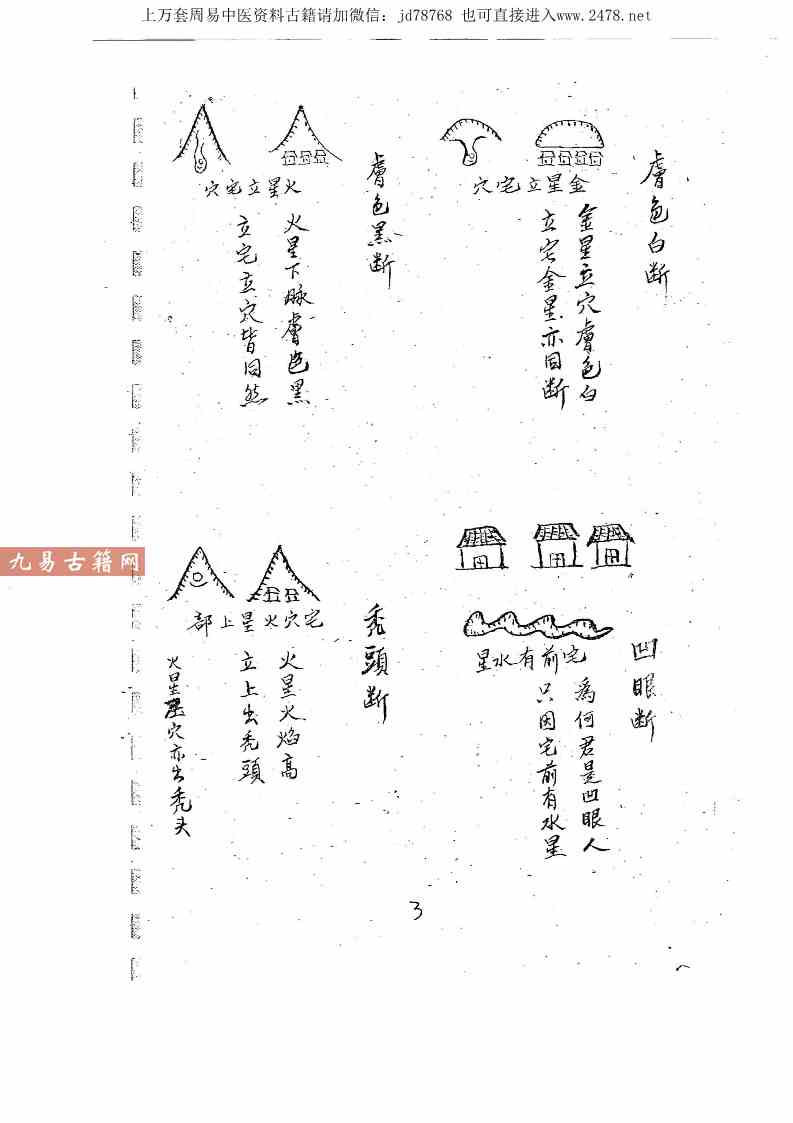 上万套周易中医资料古籍请加微信：jd78768 也可直接进入www.2478.net
膚色白断
金星立宅穴
金星立穴膚色白
立宅金星亦同断
膚色黑断
火星立宅穴
火星下脉膚色黑
立宅立穴皆同然
凹眼断
宅前有水星
為何君是凹眼人
只因宅前有水星
禿頭断
宅穴火星上部
火星火焰高
立上出禿頭
火星穴亦出秃头
九易古籍网
3